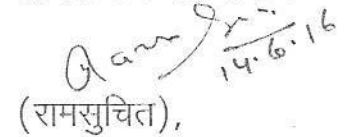 14.6.16
(रामसुचित),